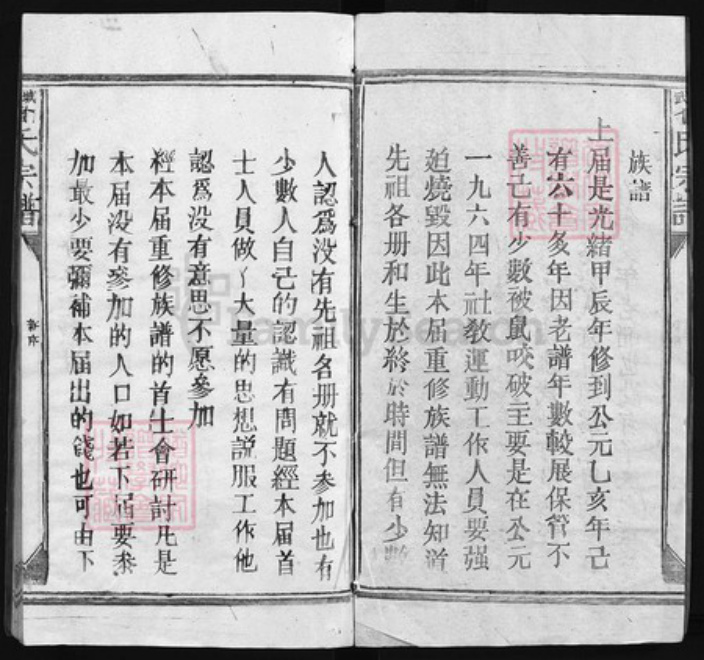 族譜
上届是光緒甲辰年修到公元乙亥年己
有六十多年因老譜年數較展保管不
善己有少數被鼠咬破主要是在公元
一九六四年社教運動工作人員要强
迫燒毀因此本届重修族譜無法知道
先祖各册和生於終於時間但有少數
人認爲没有先祖名册就不參加也有
少數人自己的認識有問題經本届首
士人員做了大量的思想説服工作他
認爲没有意思不愿參加
經本届重修族譜的首士會研討凡是
本届没有參加的人口如若下届要參
加最少要彌補本届出的錢也可由下
氏宗譜
FamilySearch